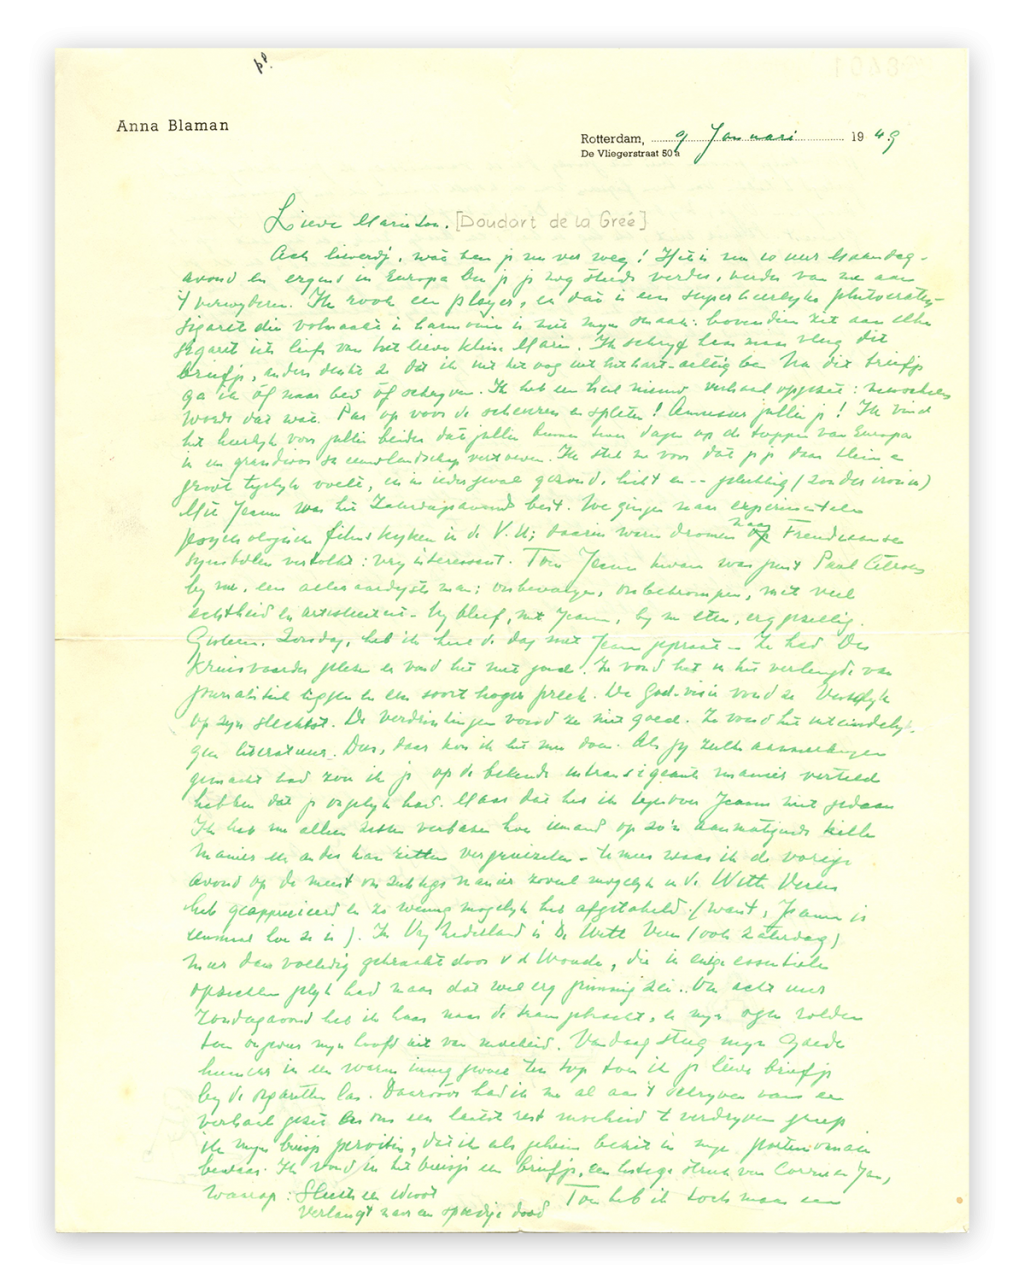 Anna Blaman
Rotterdam, 9 Januari 1949
De Vliegerstraat 50a
Lieve Marie-Lou. [Doudart de la Greé]
Ach lieverd, wat ben je nu ver weg! Het is nu 10 uur Maandag-
avond en ergens in Europa ben je je nog steeds verder, verder van me aan
't verwijderen. Ik rook een player, en dat is een superheerlijke
sigaret die volmaakt in harmonie is met mijn smaak: bovendien zit aan elke
sigaret iets liefs van het lieve kleine Marie. Ik schrijf haar maar vlug dit
briefje, anders denkt ze dat ik uit het oog uit het hart-achtig ben. Na dit briefje
ga ik óf naar bed óf schrijven. Ik heb een heel nieuw verhaal opgezet: misschien
wordt dat wat. Pas op voor de scheuren en spleten! Amuseer jullie je! Ik vind
het heerlijk voor jullie beiden dat jullie twee dagen op de toppen van Europa
in een grandioos sneeuwlandschap vertoeven. Ik stel me voor dat je je dan klein en
groot tegelijk voelt, en in ieder geval gezond, licht en -- gelukkig (zonder ironie)
Met Jeanne was het Zaterdagavond best. We gingen naar experimentele
psychologische films kijken in de V.U; daarin waren dromen naar Freudiaanse
symbolen vertolkt: very interessant. Toen Jeanne kwam was juist Paul Citroen
bij me, een alleraardigste man; onbevangen, onbekrompen, met veel
echtheid en artisticiteit - Hij bleef, met Jeanne, bij me eten, erg gezellig.
Gisteren, Zondag, heb ik heel de dag met Jeanne gepraat - Ze had De
Kruisvaarder gelezen en vond het niet goed. Ze vond het in het verlengde van
journalistiek liggen en een soort hoger preek. De God-visie vond ze Vestdijk
op zijn slechtst. De verdichtingen vond ze niet goed. Ze vond het uiteindelijk
geen literatuur. Dus, daar kon ik het mee doen. Als jij zulke aanmerkingen
gemaakt had zou ik je op de bekende intransigeante manier verteld
hebben dat je ongelijk had. Maar dat heb ik tegenover Jeanne niet gedaan
Ik heb me alleen zitten verbazen hoe iemand op zo'n aanmatigende kille
manier een ander kan zitten vergruizelen - temeer waar ik de vorige
avond op de meest onzelfge manier zoveel mogelijk in de Witte Veren
heb geapprecieerd en zo weinig mogelijk heb afgetakeld. (want, Jeanne is
jaloers hoe ze is). In Vrij Nederland is De Witte Veren (ook Zaterdag)
meer dan volledig gekraakt door v d Woude, die in enige essentiële
opzichten gelijk had maar dat wel erg grinnig zei. Om acht uur
Zondagavond heb ik haar naar de tram gebracht, en mijn ogen rolden
toen ongeveer mijn hoofd uit van moeheid. Vandaag steeg mijn goede
humeur in een warm innig gevoel ten top toen ik je lieve briefje
bij de sigaretten las. Daarvóór had ik me al aan 't schrijven van een
verhaal gezet en om een laatste rest moeheid te verdrijven greep
ik mijn biesje, dat ik als geheim bezit in mijn portemonnaie
bewaar. Ik vond in het biesje een briefje, een lollige streek van Corrie en Jan,
waarop: Slechts een idioot
verlangt naar een spoedige dood Toen heb ik toch maar een